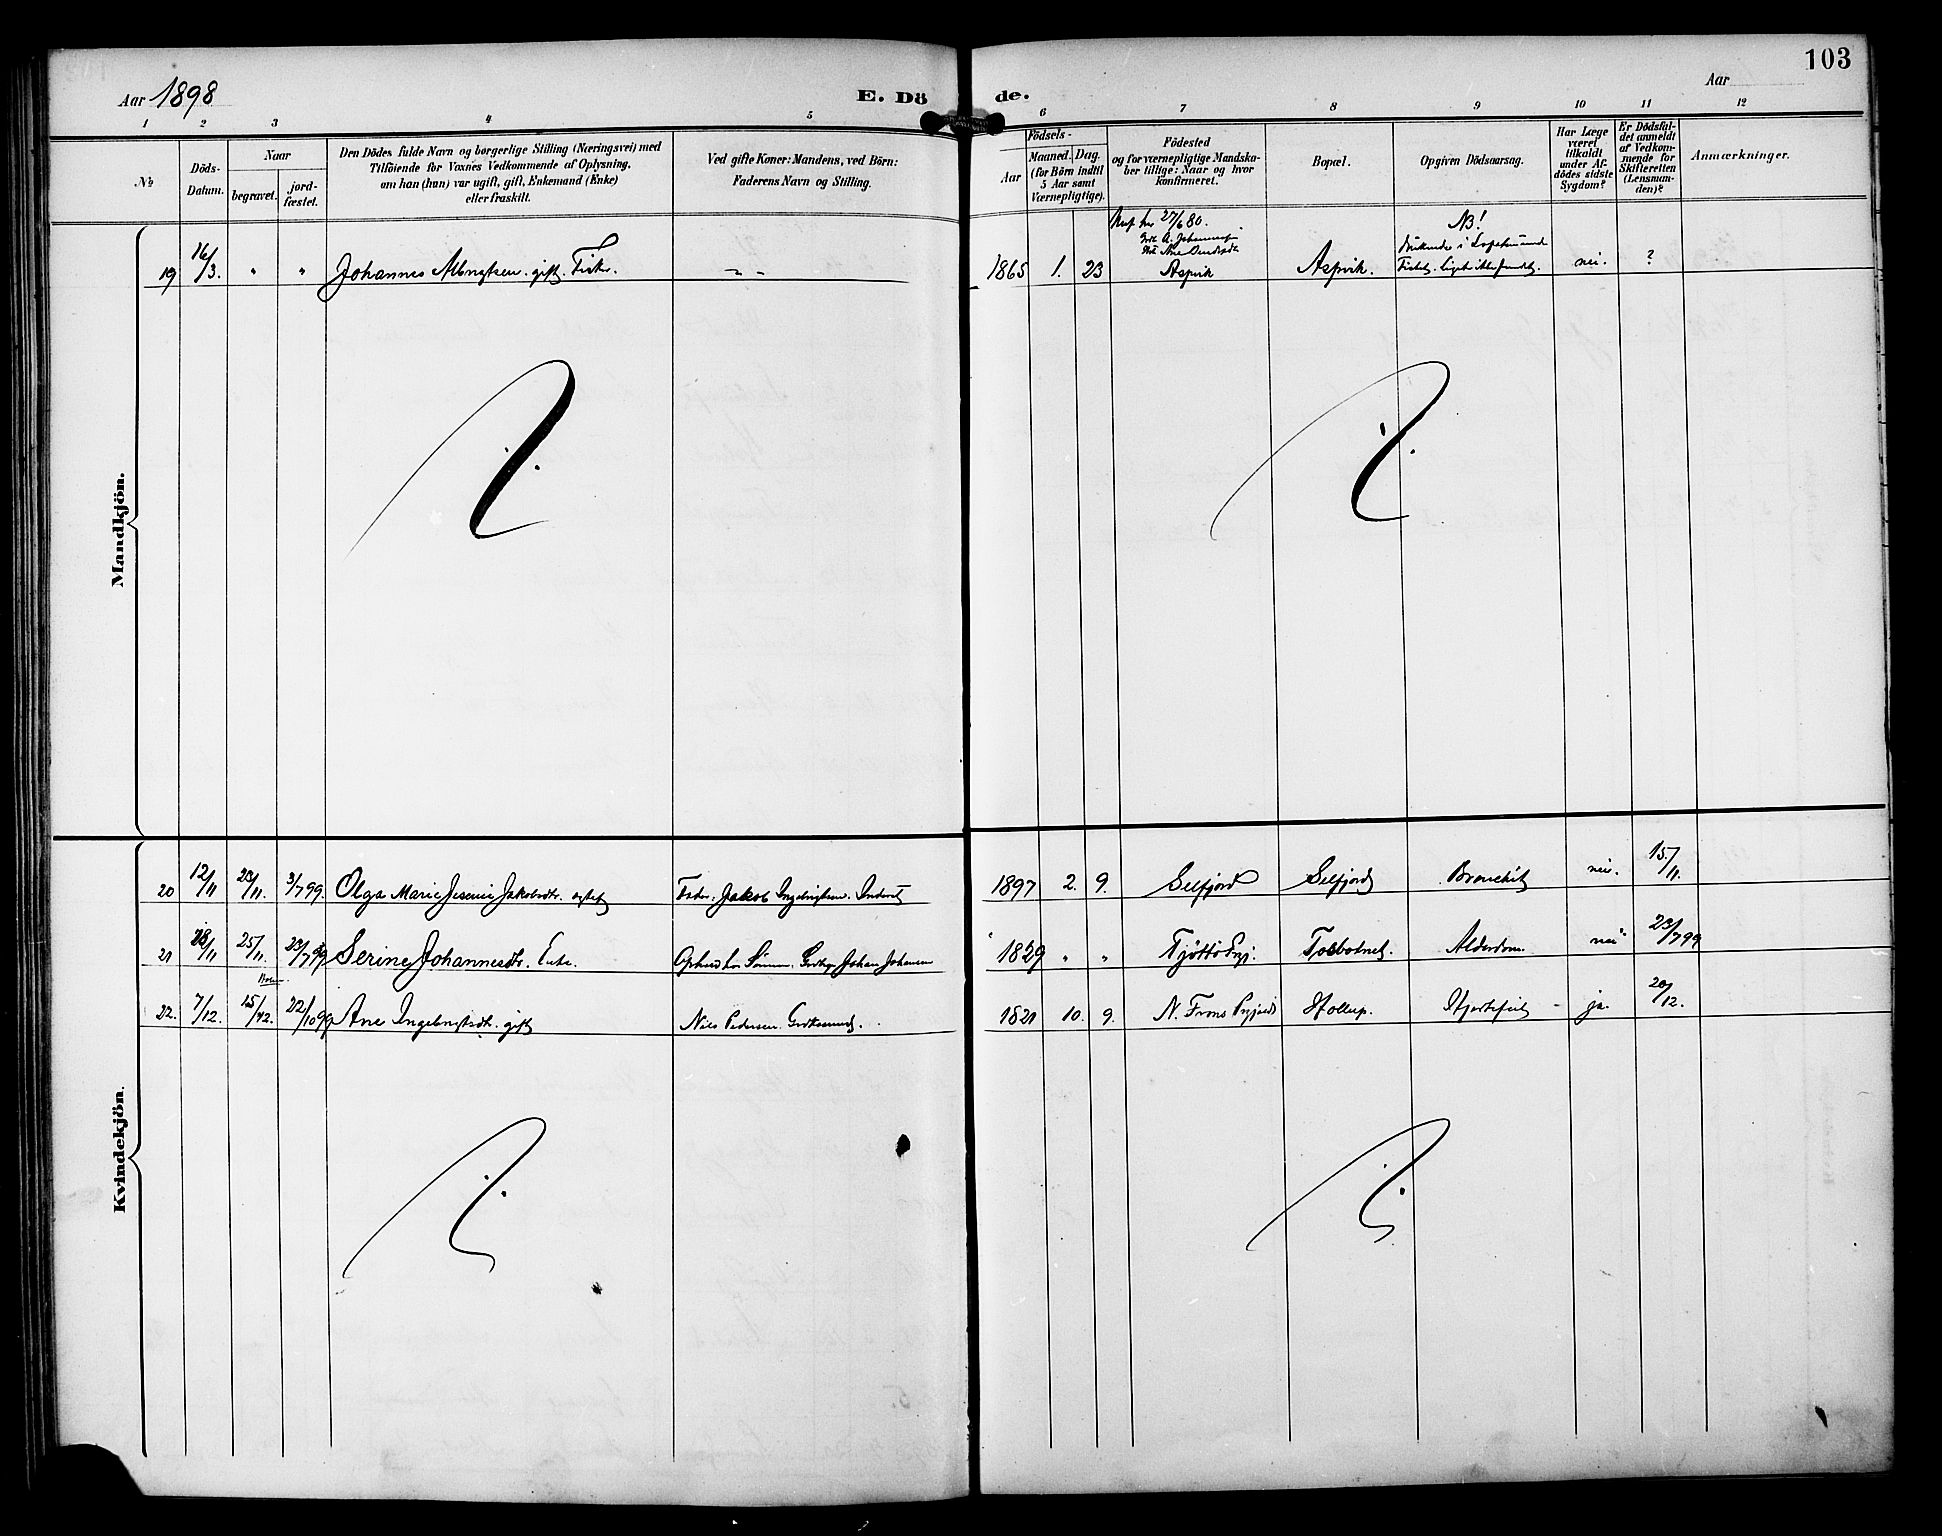 103
Aar 1898
E. Dö de.
Aar
1 2 3 4 5 6 7 8 9 10 11 12
No
Döds-
Datum.
Naar
begravet.
jord-
fæstet.
Den Dödes fulde Navn og borgerlige Stilling (Næringsvei) med
Tilföiende for Voxnes Vedkommende af Oplysning,
om han (hun) var ugift, gift, Enkemand (Enke)
eller fraskilt.
Ved gifte Koner: Mandens, ved Börn:
Faderens Navn og Stilling.
Födsels-
Aar
Maaned. Dag.
(for Börn indtil
5 Aar samt
Værnepligtige).
Födested
og for værnepligtige Mandska-
ber tillige: Naar og hvor
konfirmeret.
Bopæl.
Opgiven Dödsaarsag.
Har Læge
været
tilkaldt
under Af-
dödes sidste
Sygdom?
Er Dödsfal-
det anmeldt
af Vedkom-
mende for
Skifteretten
(Lensman-
den)?
Anmærkninger.
Mandkjön.
19 16/3. " " Johannes gift. Fisker. 1865 1. 23 27/6 80. Aspvik Aspvik. NB! Fiskeri. liget ikke fundet. nei. ?
Kvindekjön.
20 12/11 20/11. 3/7 99. Olga Marie Jakobsdtr. Fader. Jakob Ingebrigtsen. 1897 2. 9. Selfjord Selfjord Bronchit nei. 15/11.
21 25/11. 23/7 99 Serine Johannesdtr. Enke. Johan Johansen 1829 " " Tjöttö Prgj. Tosbotnet. Alderdom nei 23/7 99
22. 7/12. 22/10 99 Ane Ingebrigtsdtr. gift Nils Pedersen. 1821 10. 9. N. Frons Prgjæld Hollup. Hjertefeil - ja. 20/12.